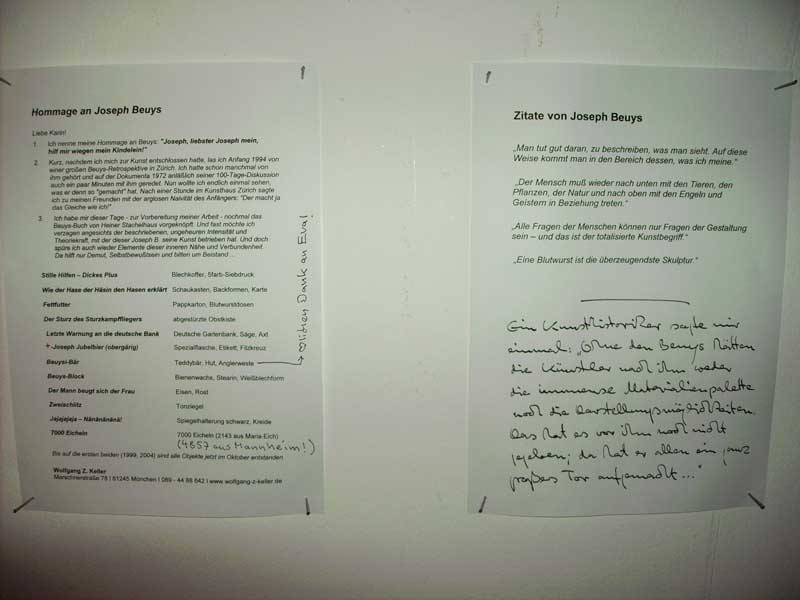 Hommage an Joseph Beuys
Liebe Karin!
1. Ich nenne meine Hommage an Beuys: "Joseph, liebster Joseph mein,
hilf mir wiegen mein Kindelein!"
2. Kurz, nachdem ich mich zur Kunst entschlossen hatte, las ich Anfang 1994 von
einer großen Beuys-Retrospektive in Zürich. Ich hatte schon manchmal von
ihm gehört und auf der Dokumenta 1972 anläßlich seiner 100-Tage-Diskussion
auch ein paar Minuten mit ihm geredet. Nun wollte ich endlich einmal sehen,
was er denn so "gemacht" hat. Nach einer Stunde im Kunsthaus Zürich sagte
ich zu meinen Freunden mit der arglosen Naivität des Anfängers: "Der macht ja
das Gleiche wie ich!"
3. Ich habe mir dieser Tage - zur Vorbereitung meiner Arbeit - nochmal das
Beuys-Buch von Heiner Stachelhaus vorgeknöpft. Und fast möchte ich
verzagen angesichts der beschriebenen, ungeheuren Intensität und
Theoriekraft, mit der dieser Joseph B. seine Kunst betrieben hat. Und doch
spüre ich auch wieder Elemente dieser inneren Nähe und Verbundenheit.
Da hilft nur Demut, Selbstbewußtsein und bitten um Beistand ...
Stille Hilfen – Dickes Plus Blechkoffer, 5farb-Siebdruck
Wie der Hase der Häsin den Hasen erklärt Schaukasten, Backformen, Karte
Fettfutter Pappkarton, Blutwurstdosen
Der Sturz des Sturzkampffliegers abgestürzte Obstkiste
Letzte Warnung an die deutsche Bank Deutsche Gartenbank, Säge, Axt
+ Joseph Jubelbier (obergärig) Spezialflasche, Etikett, Filzkreuz
Beuysi-Bär Teddybär, Hut, Anglerweste
Beuys-Block Bienenwachs, Stearin, Weißblechform
Der Mann beugt sich der Frau Eisen, Rost
Zweischlitz Tonziegel
Jajajajaja – Nänänänänä! Spiegelhalterung schwarz, Kreide
7000 Eicheln 7000 Eicheln (2143 aus Maria-Eich)
(4857 aus Mannheim!)
Bis auf die ersten beiden (1999, 2004) sind alle Objekte jetzt im Oktober entstanden
Wolfgang Z. Keller
Marschnerstraße 78 I 81245 München I 089 - 44 88 642 I www.wolfgang-z-keller.de
Dank an Eva!
Zitate von Joseph Beuys
„Man tut gut daran, zu beschreiben, was man sieht. Auf diese
Weise kommt man in den Bereich dessen, was ich meine."
„Der Mensch muß wieder nach unten mit den Tieren, den
Pflanzen, der Natur und nach oben mit den Engeln und
Geistern in Beziehung treten."
„Alle Fragen der Menschen können nur Fragen der Gestaltung
sein – und das ist der totalisierte Kunstbegriff."
„Eine Blutwurst ist die überzeugendste Skulptur."
Ein Kunsthistoriker sagte mir
einmal: „Ohne den Beuys hätten
die Künstler nach ihm weder
die immense Materialienpalette
noch die Darstellungsmöglichkeiten.
Das hat es vor ihm noch nicht
gegeben; da hat er allen ein ganz
großes Tor aufgemacht..."